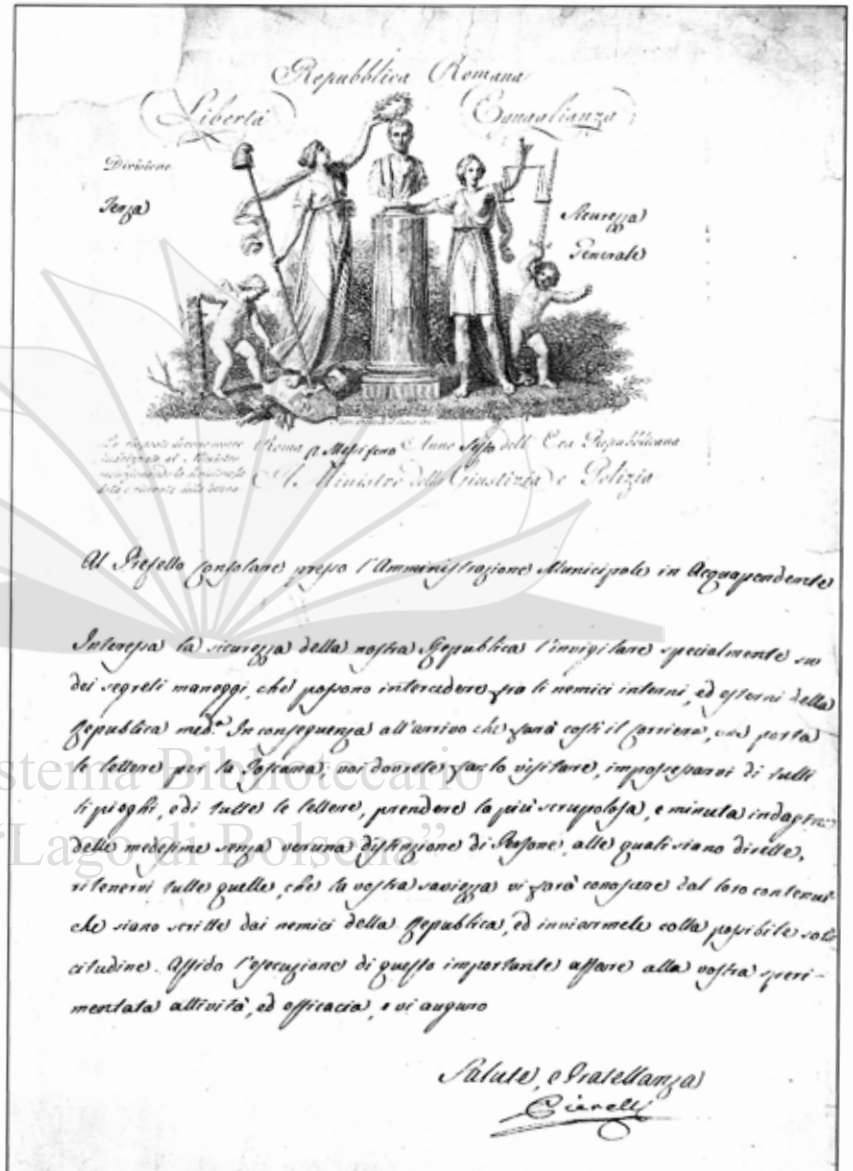 Repubblica Romana
Libertà
Eguaglianza
Divisione
Terza
Sicurezza
Generale
Le risposte devono essere
indirizzate al Ministro
Roma Messifero Anno Sesto dell'Era Repubblicana
Il Ministro della Giustizia e Polizia
Al Prefetto Consolare presso l'Amministrazione Municipale in Acquapendente
Interessa la sicurezza della nostra Repubblica l'invigilare specialmente su
dei segreti maneggi, che possono intercedere fra li nemici interni, ed esterni della
Repubblica med.ª In conseguenza all'arrivo che farà costì il Corriere, che porta
le lettere per la Toscana, voi dovrete farlo visitare, impossessarvi di tutti
li pieghi, e di tutte le lettere, prendere la più scrupolosa, e minuta
delle medesime senza veruna distinzione di Persone, alle quali siano dirette,
ritenervi tutte quelle, che la vostra saviezza vi farà conoscere dal loro
che siano scritte dai nemici della Repubblica, ed inviarmele colla possibile solle
citudine. Affido l'esecuzione di questo importante affare alla vostra speri-
mentata attività, ed efficacia, e vi auguro
Salute, e Fratellanza
Sistema Bibliotecario
"Lago di Bolsena"